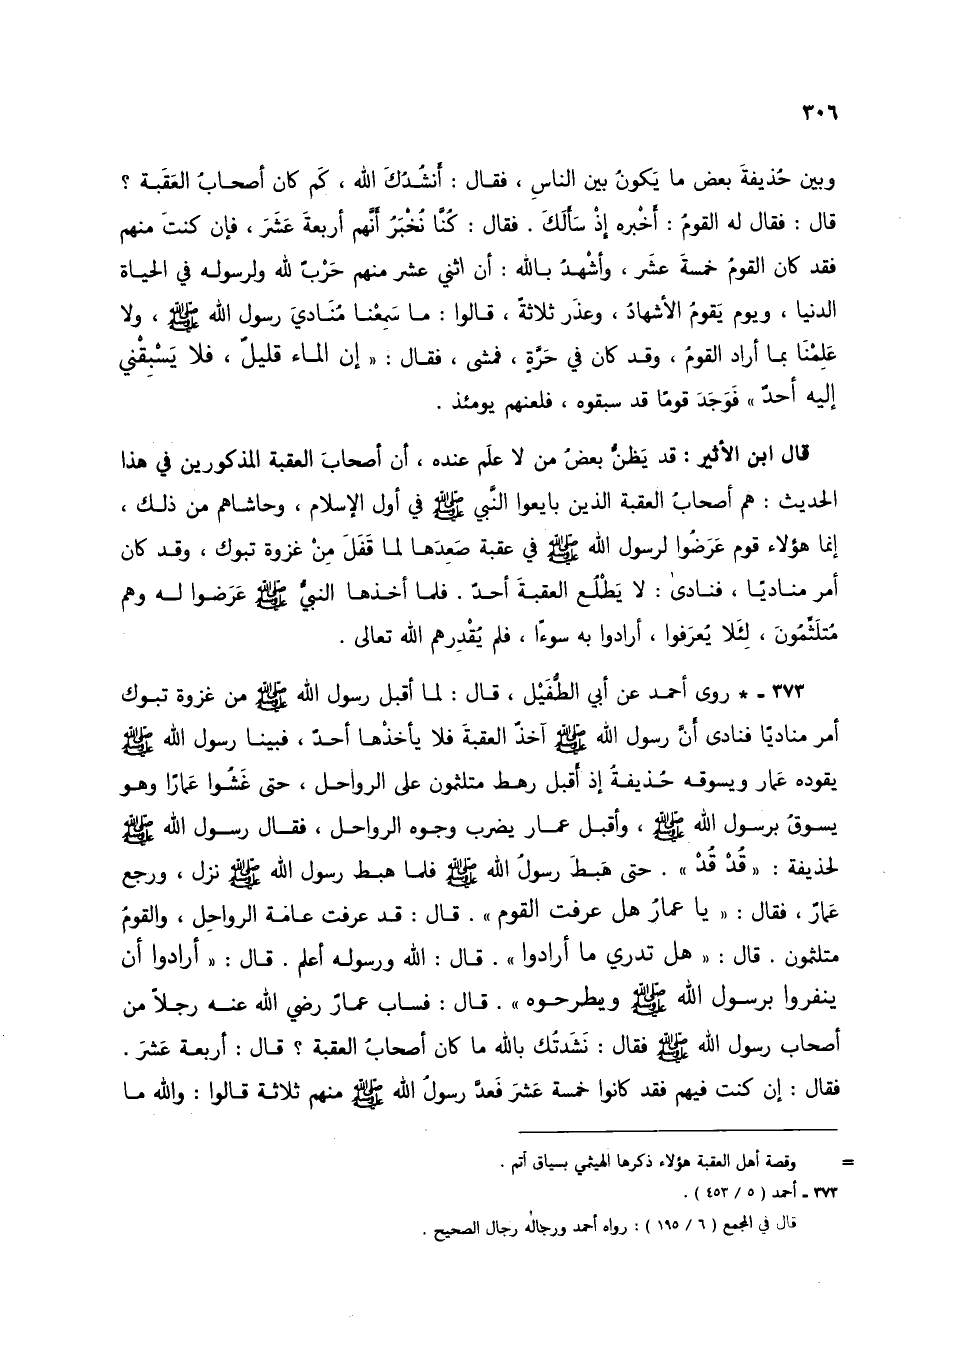 ٣٠٦
وبين حُذيفةَ بعض ما يَكونُ بين الناسِ ، فقـال : أَنشُدُكَ الله ، كَم كان أصحـابُ العَقَبـة ؟
قال : فقال له القومُ : أَخْبره إذْ سَأَلَكَ . فقال : كُنَّا نُخْبَرُ أَنَّهم أربعةَ عَشَرَ ، فإن كنتَ منهم
فقد كان القومُ خمسةَ عشَر ، وأشْهدُ بـالله : أن اثني عشر منهم حَرْبٌ لله ولرسولـه في الحياة
الدنيا ، ويوم يَقومُ الأشهادُ ، وعذَر ثلاثةً ، قـالوا : مـا سَمِعْنـا مُنَـاديَ رسول الله ﷺ ، ولا
عَلِمْنَا بمـا أراد القومُ ، وقـد كان في حَرَّةٍ ، فمشى ، فقـال : « إن المـاء قليلٌ ، فلا يَسْبِقْني
إليه أحدٌ » فَوَجَدَ قومًا قد سبقوه ، فلعنهم يومئذ .
قال ابن الأثير : قد يَظنُّ بعضُ من لا علم عنده ، أن أصحابَ العقبة المذكورين في هذا
الحديث : هم أصحابُ العقبة الذين بايعوا النَّبي ﷺ في أول الإسلام ، وحاشـاهم من ذلـك ،
إنما هؤلاء قوم عَرَضُوا لرسول الله ﷺ في عقبة صَعِدَهـا لمـا قَفَلَ مِنْ غزوة تبوك ، وقـد كان
أمر منـاديًـا ، فنـادى : لا يَطْلُع العقبـةَ أحـدٌ . فلمـا أخـذهـا النبيُّ ﷺ عَرَضـوا لـه وهم
مُتلَثِّمُونَ ، لِئَلا يُعرَفوا ، أرادوا به سوءًا ، فلم يُقْدِرهم الله تعالى .
٣٧٣ - * روى أحمـد عن أبي الطُّفَيْل ، قـال : لمـا أقبل رسول الله ﷺ من غزوة تبـوك
أمر مناديًا فنادى أنَّ رسول الله ﷺ آخذٌ العقبةَ فلا يأخذْهـا أحـدٌ ، فبينـا رسول الله ﷺ
يقوده عَمار ويسوقـه حُـذيفـةُ إذ أَقبل رهـط متلثمون على الرواحـل ، حتى غَشُـوا عَمارًا وهـو
يسـوقُ برسول الله ﷺ ، وأقبـل عمـار يضرب وجـوه الرواحـل ، فقـال رسـول الله ﷺ
لحذيفة : « قُدْ قُدْ » . حتى هَبـطَ رسولُ الله ﷺ فلمـا هبـط رسول الله ﷺ نزل ، ورجع
عَمارٌ ، فقال : « يا عمارُ هل عرفت القوم » . قـال : قـد عرفت عـامـة الرواحِل ، والقومُ
متلثمون . قال : « هل تدري ما أرادوا » . قـال : الله ورسولـه أعلم . قـال : « أرادوا أن
ينفروا برسـول الله ﷺ ويطرحـوه » . قـال : فسـاب عمـارٌ رضي الله عنـه رجـلاً من
أصحاب رسول الله ﷺ فقال : نَشَدتُك بالله ما كان أصحابُ العقبة ؟ قـال : أربعـة عَشَرَ .
فقال : إن كنت فيهم فقد كانوا خمسة عَشَرَ فَعدَّ رسولُ الله ﷺ منهم ثلاثـة قـالوا : والله مـا
= وقصة أهل العقبة هؤلاء ذكرها الهيثمي بسياق أتم .
٣٧٣ - أحمد ( ٥ / ٤٥٣ ) .
قال في المجمع ( ٦ / ١٩٥ ) : رواه أحمد ورجاله رجال الصحيح .